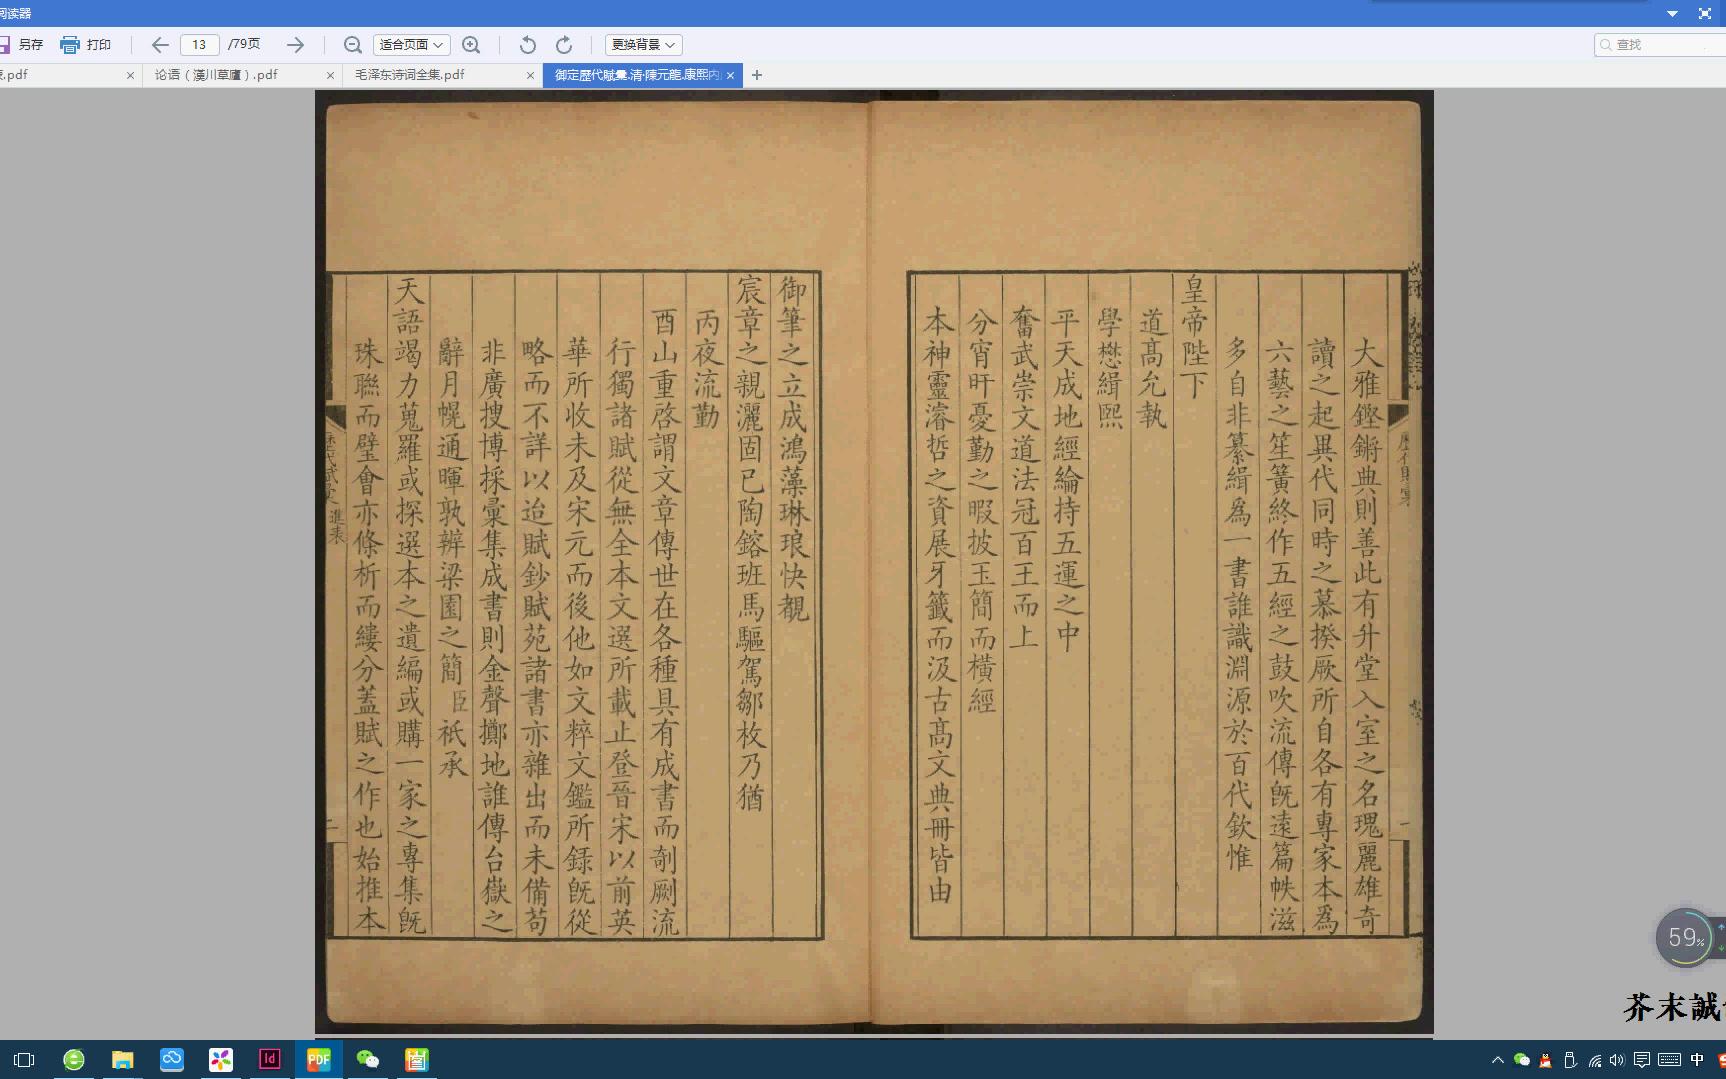 阅读器
另存
打印
13
/79页
适合页面
更换背景
查找
.pdf
论语（漢川草廬）.pdf
毛泽东诗词全集.pdf
御定歷代賦彙.清.陳元龍.康熙内
大雅鏗鏘典則善此有升堂入室之名瑰麗雄奇
讀之起異代同時之慕揆厥所自各有專家本爲
六藝之笙簧終作五經之鼓吹流傳旣遠篇帙滋
多自非纂緝爲一書誰識淵源於百代欽惟
皇帝陛下
道髙允執
學懋緝熙
平天成地經綸持五運之中
奮武崇文道法冠百王而上
分宵旰憂勤之暇披玉簡而橫經
本神靈濬哲之資展牙籤而汲古髙文典冊皆由
歷代賦彙
一
御筆之立成鴻藻琳琅快覩
宸章之親灑固已陶鎔班馬驅駕鄒枚乃猶
丙夜流勤
酉山重啓謂文章傳世在各種具有成書而剞劂流
行獨諸賦從無全本文選所載止登晉宋以前英
華所收未及宋元而後他如文粹文鑑所錄旣從
略而不詳以迨賦鈔賦苑諸書亦雜出而未備苟
非廣搜博採彙集成書則金聲擲地誰傳台嶽之
辭月幌通暉孰辨梁園之簡臣祇承
天語竭力蒐羅或探選本之遺編或購一家之專集旣
珠聯而璧會亦條析而縷分蓋賦之作也始推本
歷代賦彙
進表
二
59%
芥末誠
Id
PDF
中